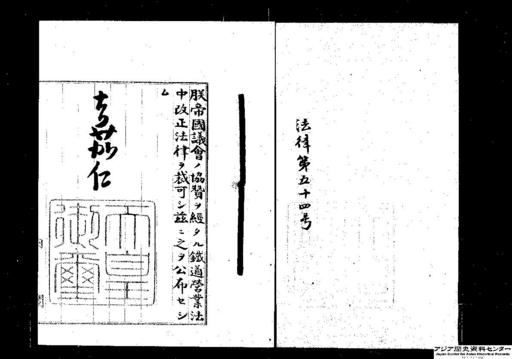 法律第五十四号
朕帝國議會ノ協賛ヲ經タル鐵道營業法
中改正法律ヲ裁可シ茲ニ之ヲ公布セシ
ム
嘉仁
天皇
御璽
アジア歴史資料センター
Japan Center for Asian Historical Records